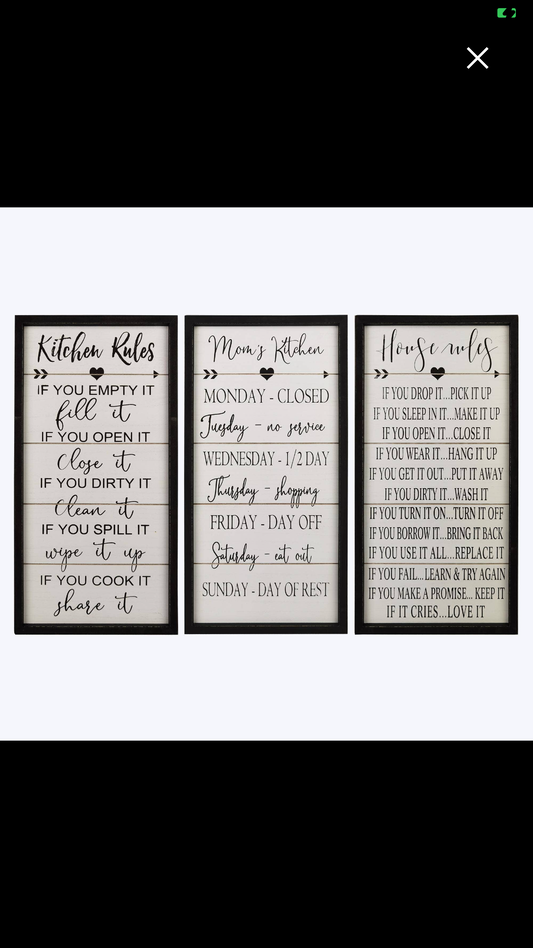 Kitchen Rules
IF YOU EMPTY IT
fill it
IF YOU OPEN IT
Close it
IF YOU DIRTY IT
Clean it
IF YOU SPILL IT
wipe it up
IF YOU COOK IT
share it
Mom's Kitchen
MONDAY - CLOSED
Tuesday - no service
WEDNESDAY - 1/2 DAY
Thursday - shopping
FRIDAY - DAY OFF
Saturday - eat out
SUNDAY - DAY OF REST
House rules
IF YOU DROP IT...PICK IT UP
IF YOU SLEEP IN IT...MAKE IT UP
IF YOU OPEN IT...CLOSE IT
IF YOU WEAR IT...HANG IT UP
IF YOU GET IT OUT...PUT IT AWAY
IF YOU DIRTY IT...WASH IT
IF YOU TURN IT ON...TURN IT OFF
IF YOU BORROW IT...BRING IT BACK
IF YOU USE IT ALL...REPLACE IT
IF YOU FAIL...LEARN & TRY AGAIN
IF YOU MAKE A PROMISE... KEEP IT
IF IT CRIES...LOVE IT